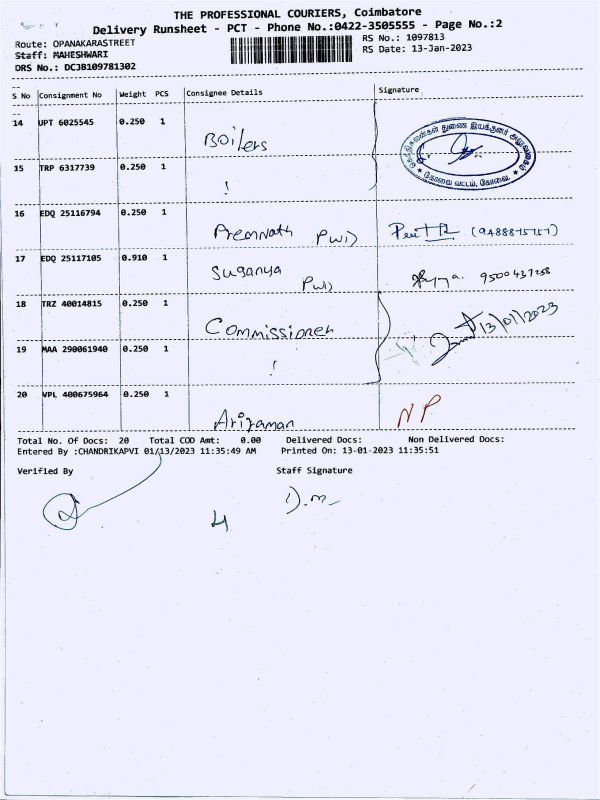 THE PROFESSIONAL COURIERS, Coimbatore
Delivery Runsheet - PCT - Phone No.:0422-3505555 - Page No.:2
Route: OPANAKARASTREET RS No.: 1097813
Staff: MAHESHWARI RS Date: 13-Jan-2023
DRS No.: DCJB109781302
S No Consignment No Weight PCS Consignee Details Signature
14 UPT 6025545 0.250 1
Boilers
15 TRP 6317739 0.250 1
கோவை வட்டம், கோவை.
16 EDQ 25116794 0.250 1
Premnath PWD
17 EDQ 25117105 0.910 1
Suganya PWD
18 TRZ 40014815 0.250 1
Commissioner 13/01/2023
19 MAA 290061940 0.250 1
20 VPL 400675964 0.250 1
NP
Total No. Of Docs: 20 Total COD Amt: 0.00 Delivered Docs: Non Delivered Docs:
Entered By :CHANDRIKAPVI 01/13/2023 11:35:49 AM Printed On: 13-01-2023 11:35:51
Verified By Staff Signature